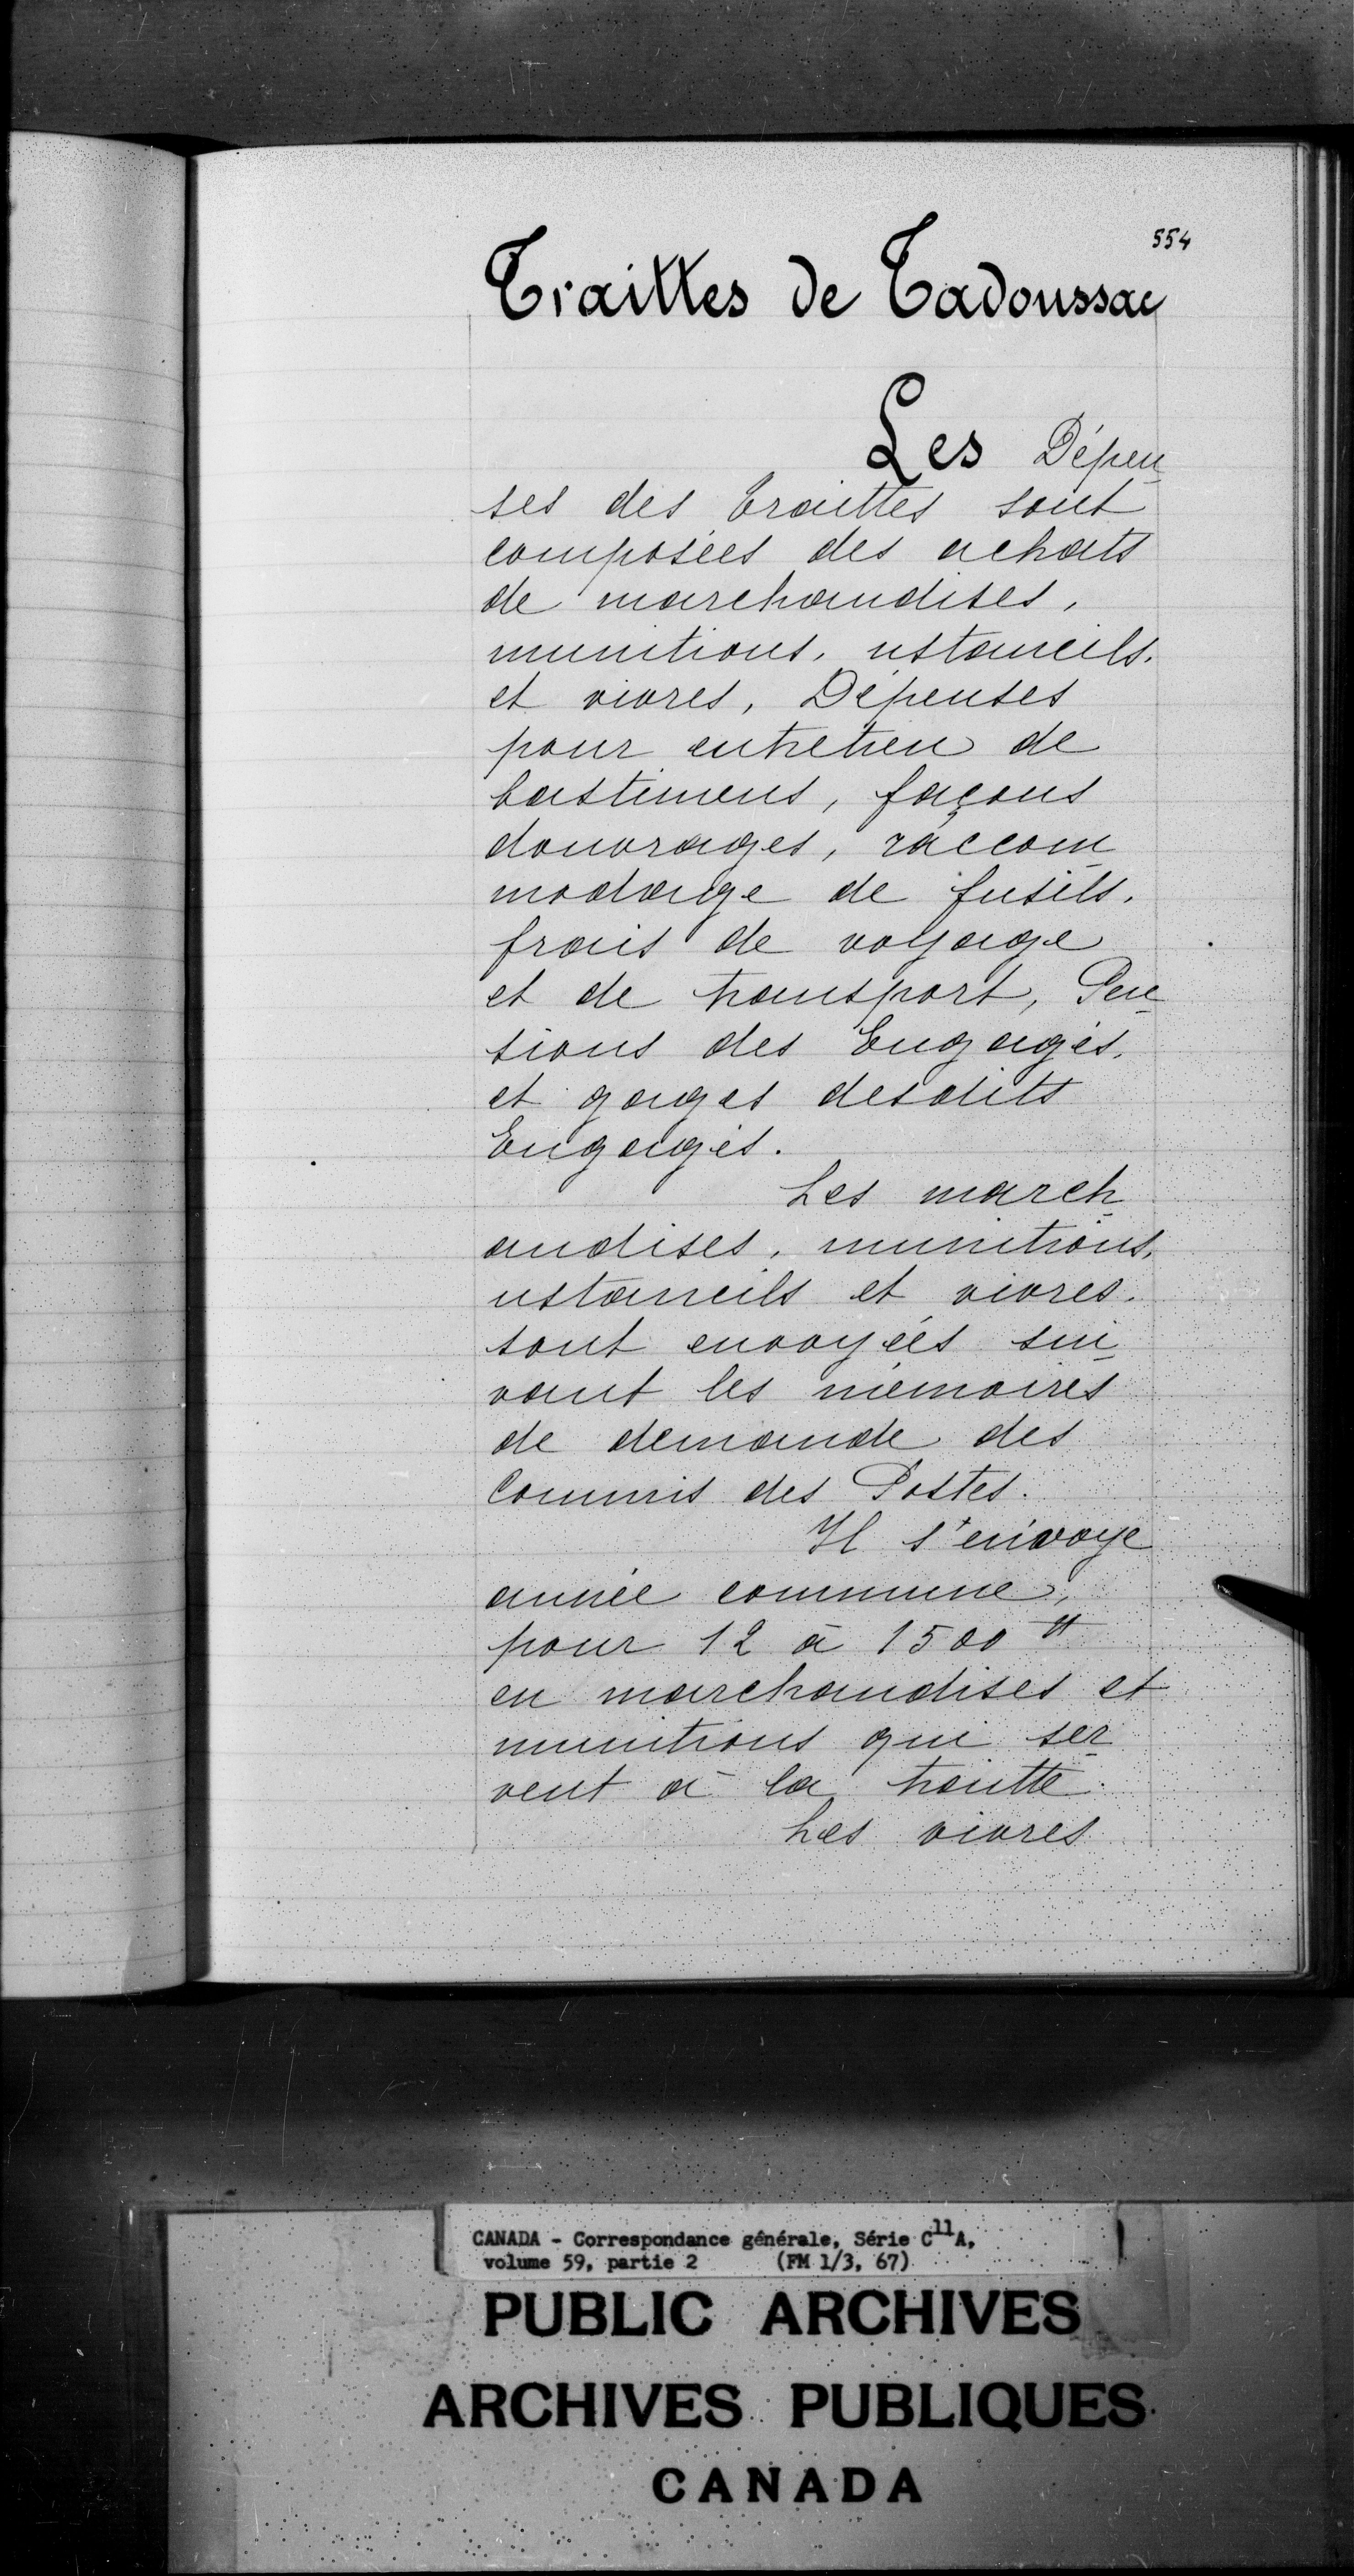 554
Traittes de Tadoussac
Les Dépen
ses des traittes sont
composées des achats
de marchandises,
munitions, ustanceils,
et vivres, Dépenses
pour entretien de
bastimens, façons
douvrages, raccom
modage de fusils,
frais de voyage
et de transport, Pen
sions des Engagés,
et gages desdits
Engagés.
Les march
andises, munitions,
ustanceils et vivres,
sont envoyées sui
vant les mémoires
de demande des
Commis des Postes.
Il s'envoye
année commune,
pour 12 à 1500 ₶
en marchandises et
munitions qui ser
vent à la traitte.
Les vivres
CANADA - Correspondance générale, Série C11A,
volume 59, partie 2 (FM 1/3, 67)
PUBLIC ARCHIVES
ARCHIVES PUBLIQUES
CANADA